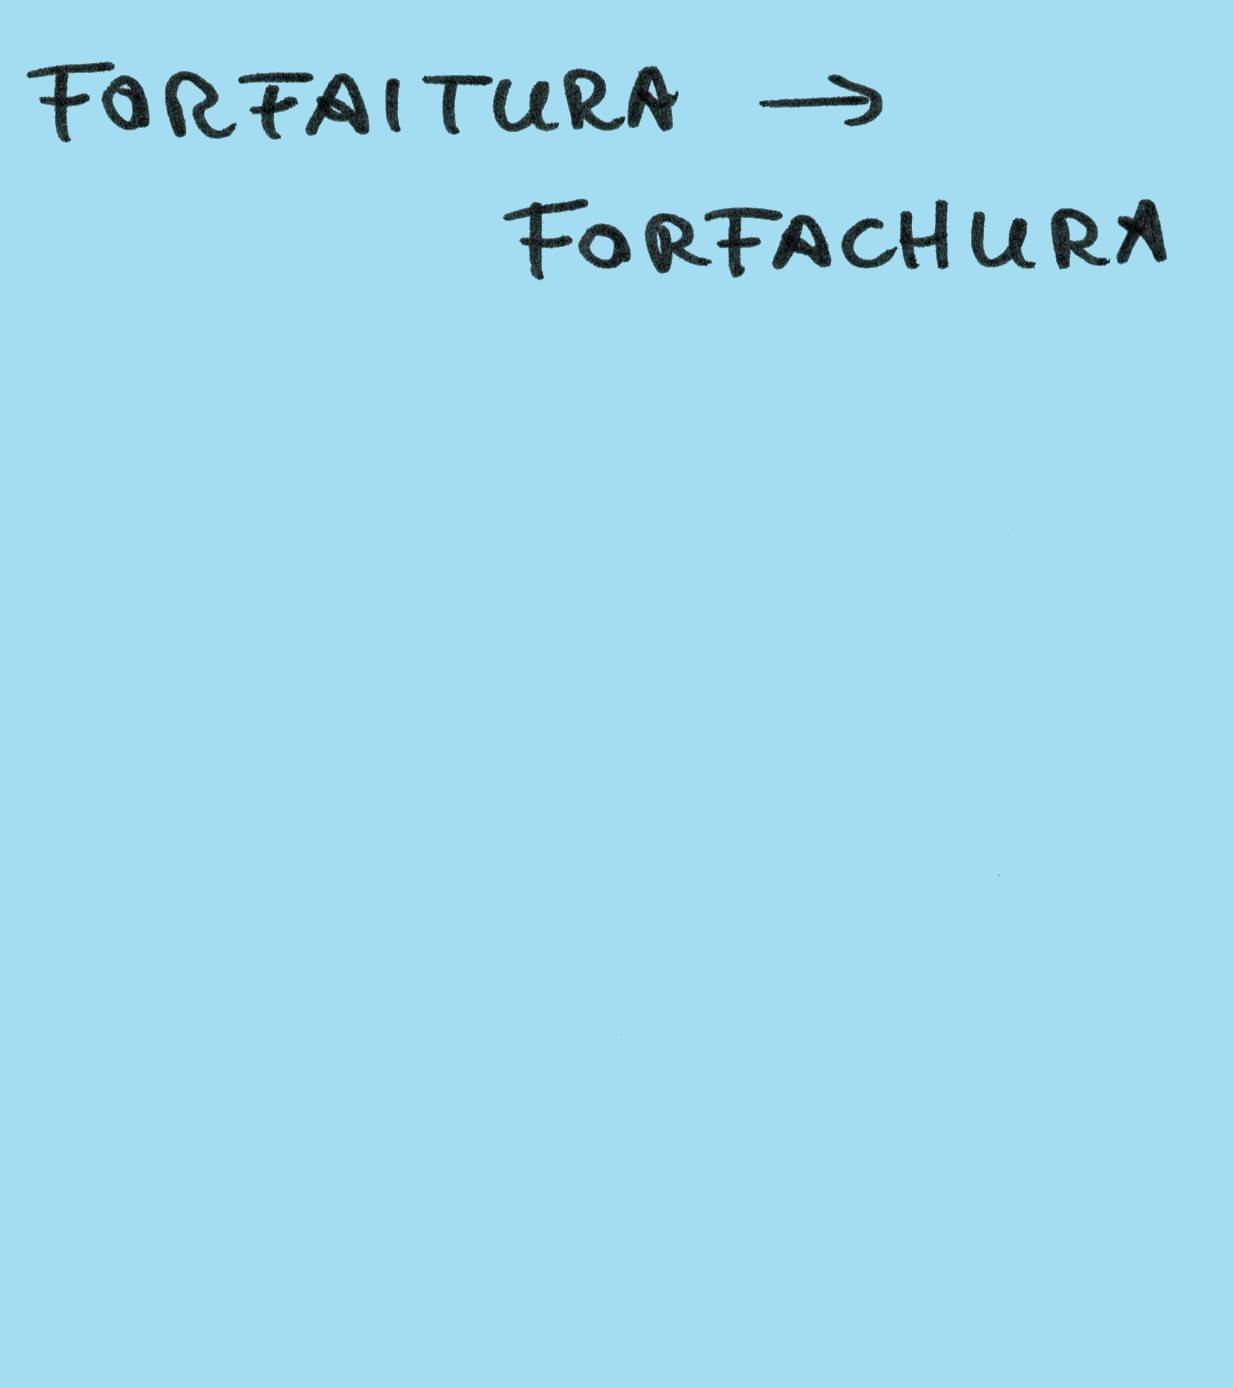 FORFAITURA →
FORFACHURA